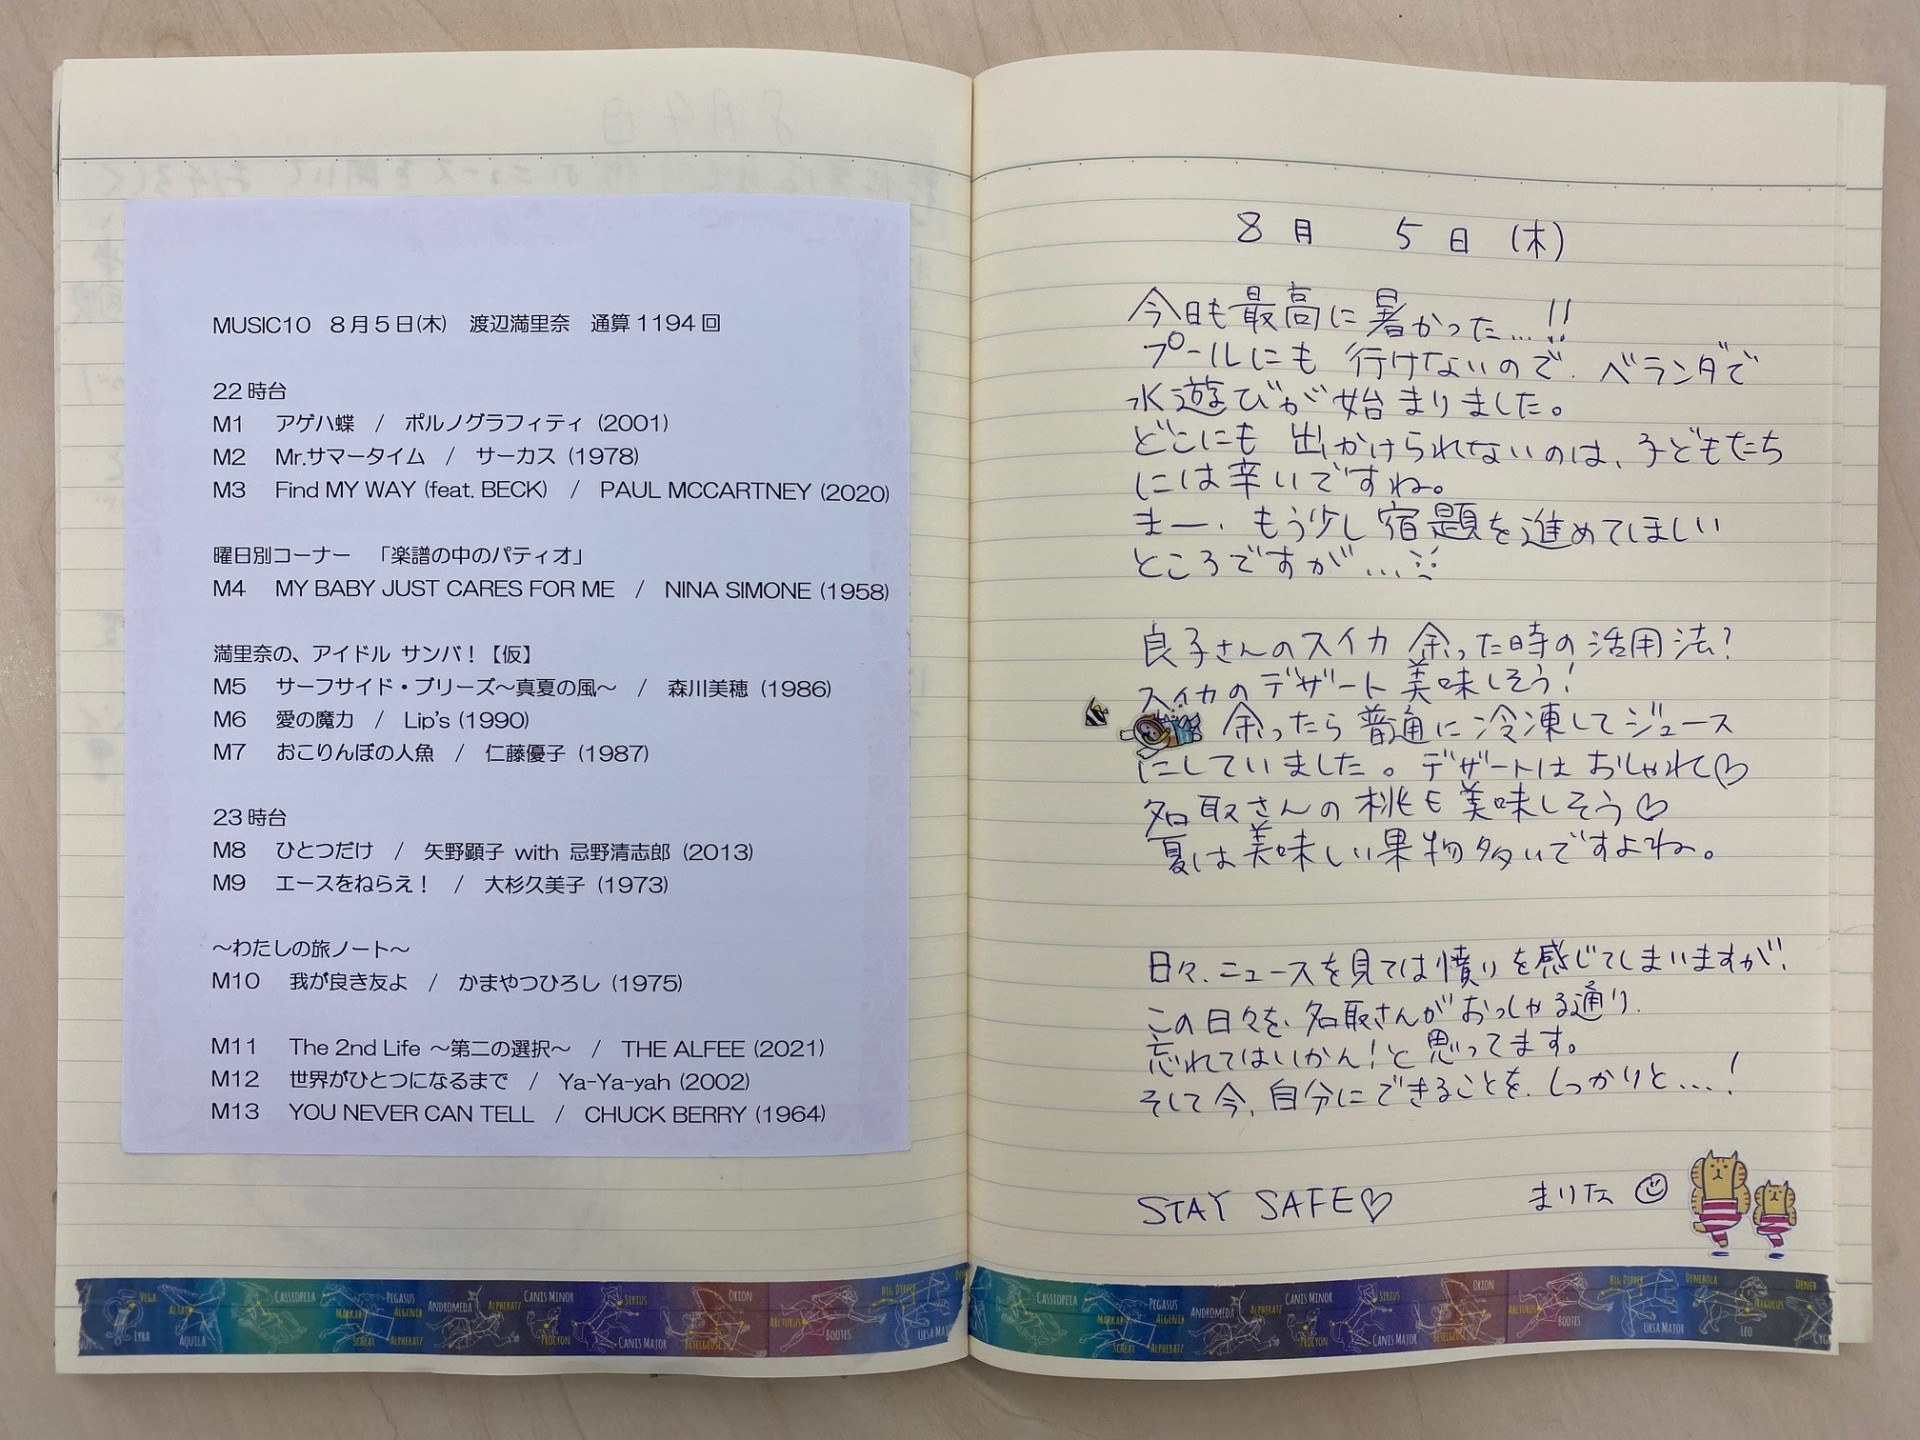 MUSIC10 8月5日(木) 渡辺満里奈 通算1194回
22時台
M1 アゲハ蝶 / ポルノグラフィティ (2001)
M2 Mr.サマータイム / サーカス (1978)
M3 Find MY WAY (feat. BECK) / PAUL MCCARTNEY (2020)
曜日別コーナー 「楽譜の中のパティオ」
M4 MY BABY JUST CARES FOR ME / NINA SIMONE (1958)
満里奈の、アイドル サンバ！【仮】
M5 サーフサイド・ブリーズ～真夏の風～ / 森川美穂 (1986)
M6 愛の魔力 / Lip's (1990)
M7 おこりんぼの人魚 / 仁藤優子 (1987)
23時台
M8 ひとつだけ / 矢野顕子 with 忌野清志郎 (2013)
M9 エースをねらえ！ / 大杉久美子 (1973)
～わたしの旅ノート～
M10 我が良き友よ / かまやつひろし (1975)
M11 The 2nd Life ～第二の選択～ / THE ALFEE (2021)
M12 世界がひとつになるまで / Ya-Ya-yah (2002)
M13 YOU NEVER CAN TELL / CHUCK BERRY (1964)
8月 5日 (木)
今日も最高に暑かった…!!
プールにも行けないので、ベランダで
水遊びが始まりました。
どこにも出かけられないのは、子どもたち
には辛いですね。
まー、もう少し宿題を進めてほしい
ところですが…
良子さんのスイカ余った時の活用法?
スイカのデザート美味しそう!
余ったら普通に冷凍してジュース
にしていました。デザートはおしゃれて♡
名取さんの桃も美味しそう♡
夏は美味しい果物多いですよね。
日々、ニュースを見ては憤りを感じてしまいますが、
この日々を、名取さんがおっしゃる通り、
忘れてはいかん!と思ってます。
そして今、自分にできることを、しっかりと…!
STAY SAFE♡ まりな
VEGA LYRA ALTAIR AQUILA CASSIOPEIA MARKAB SCHEAT PEGASUS ALGENIB ALPHERATZ ANDROMEDA ALPHERATZ CANIS MINOR PROCYON SIRIUS CANIS MAJOR ORION BETELGEUSE ARCTURUS BOOTES BIG DIPPER URSA MAJOR
CASSIOPEIA MARKAB SCHEAT PEGASUS ALGENIB ALPHERATZ ANDROMEDA ALPHERATZ CANIS MINOR PROCYON SIRIUS CANIS MAJOR ORION BETELGEUSE ARCTURUS BOOTES BIG DIPPER URSA MAJOR DENEBOLA REGULUS LEO DENEB